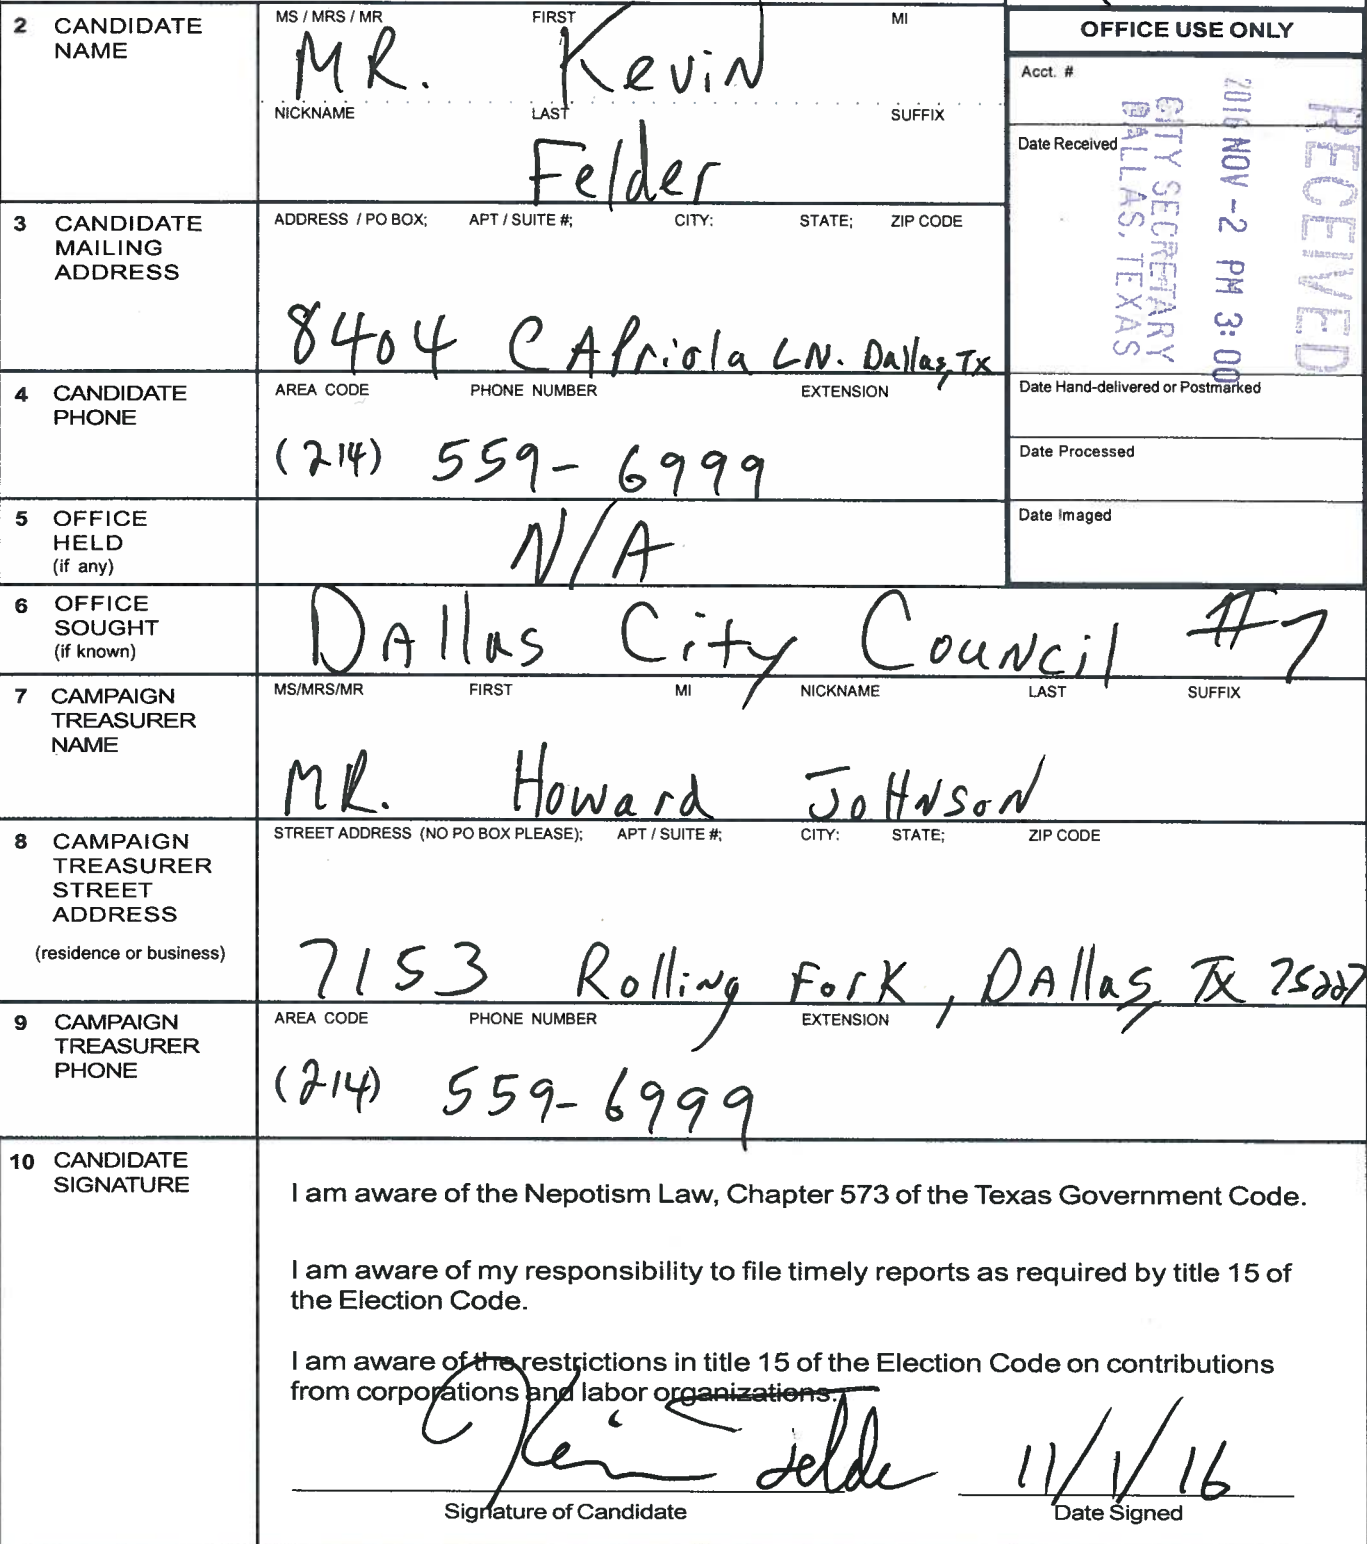 2 CANDIDATE NAME
MS / MRS / MR FIRST MI
MR. Kevin
NICKNAME LAST SUFFIX
Felder
OFFICE USE ONLY
Acct. #
Date Received
RECEIVED
2016 NOV -2 PM 3:00
CITY SECRETARY
DALLAS, TEXAS
Date Hand-delivered or Postmarked
Date Processed
Date Imaged
3 CANDIDATE MAILING ADDRESS
ADDRESS / PO BOX; APT / SUITE #; CITY: STATE; ZIP CODE
8404 CAPriola LN. Dallas, TX
4 CANDIDATE PHONE
AREA CODE PHONE NUMBER EXTENSION
(214) 559-6999
5 OFFICE HELD (if any)
N/A
6 OFFICE SOUGHT (if known)
DAllas City Council #7
7 CAMPAIGN TREASURER NAME
MS/MRS/MR FIRST MI NICKNAME LAST SUFFIX
MR. Howard JoHNSoN
8 CAMPAIGN TREASURER STREET ADDRESS
(residence or business)
STREET ADDRESS (NO PO BOX PLEASE); APT / SUITE #; CITY: STATE; ZIP CODE
7153 Rolling ForK, DAllas, TX 75227
9 CAMPAIGN TREASURER PHONE
AREA CODE PHONE NUMBER EXTENSION
(214) 559-6999
10 CANDIDATE SIGNATURE
I am aware of the Nepotism Law, Chapter 573 of the Texas Government Code.
I am aware of my responsibility to file timely reports as required by title 15 of
the Election Code.
I am aware of the restrictions in title 15 of the Election Code on contributions
from corporations and labor organizations.
Kevin Felder 11/1/16
Signature of Candidate Date Signed